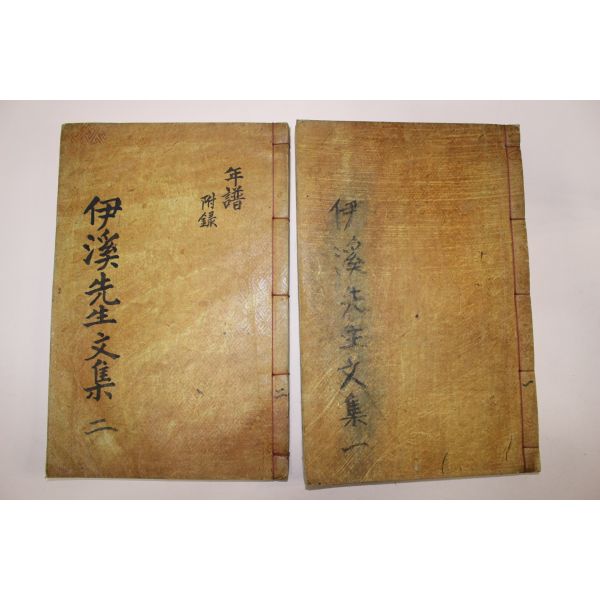 伊溪先生文集 一
一
年譜
附錄
伊溪先生文集 二
二